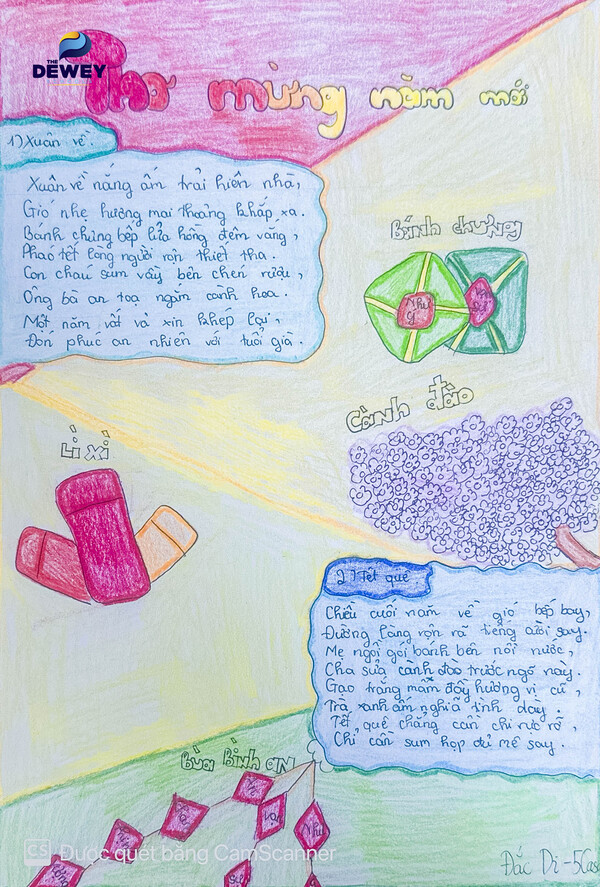 THE
DEWEY
Thơ mừng năm mới
1) Xuân về.
Xuân về nắng ấm trải hiên nhà,
Gió nhẹ hương mai thoảng khắp xa.
Bánh chưng bếp lửa hồng đêm vắng,
Pháo tết làng người rộn thiết tha.
Con cháu sum vầy bên chén rượu,
Ông bà an toạ ngắm cành hoa.
Một năm vất vả xin khép lại,
Đón phúc an nhiên với tuổi già.
Bánh chưng
Như
ý
Cành đào
Lì xì
2) Tết quê
Chiều cuối năm về gió bếp bay,
Đường làng rộn rã tiếng cười say.
Mẹ ngồi gói bánh bên nồi nước,
Cha sửa cành đào trước ngõ này.
Gạo trắng mâm đầy hương vị cũ,
Trà xanh ấm nghĩa tình dày.
Tết quê chẳng cần chi rực rỡ,
Chỉ cần sum họp đủ mê say.
Bùa Bình an
Như
CS Được quét bằng CamScanner
Đắc Di - 5